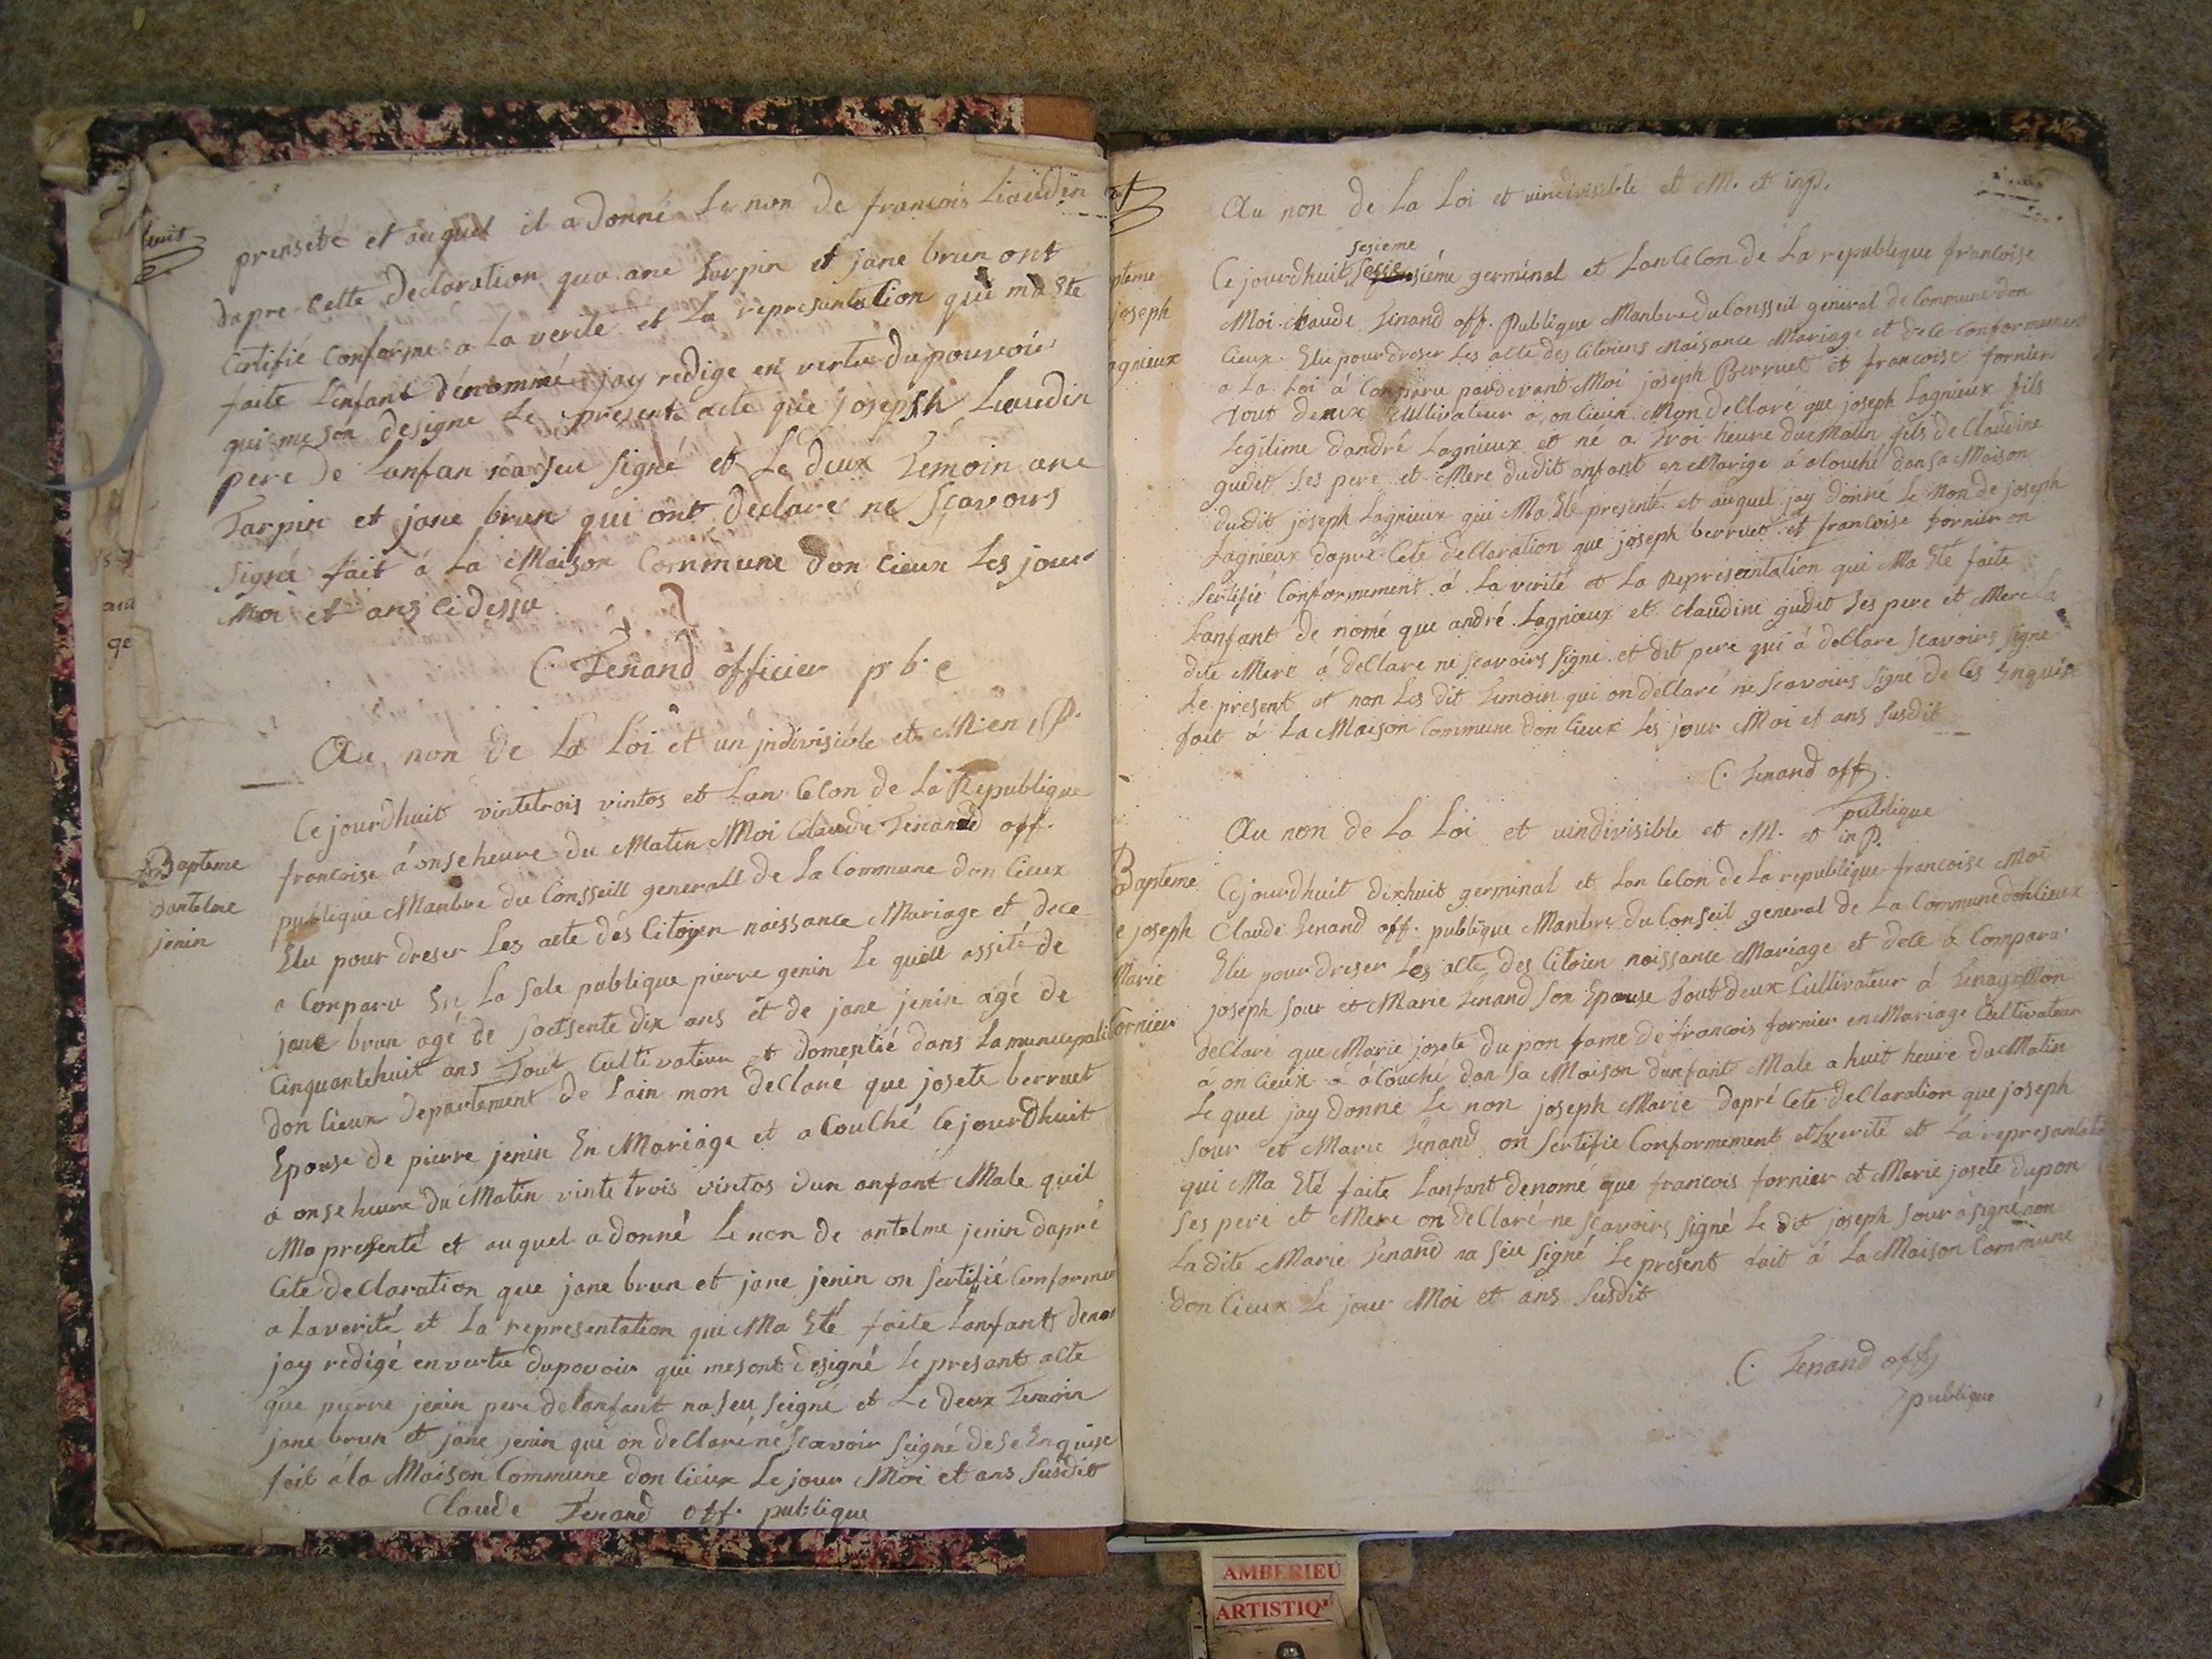 huit
prensete et auquel il a donné Le non de francois Liaudin
dapre Cette declaration que ane Tarpin et jane brun ont
Certifié Conforme a La verite et La representation qui ma ete
faite Lenfant dénommé jay redige en vertu du pouvoir
qui me son designe Le present acte que joseph Liaudin
pere de Lanfan na seu signé et Le deux Temoin ane
Tarpin et jane brun qui ont declare ne Sçavoirs
Signé fait á La Maison Commune don cieux Les jour
Moi et ans cidessu
C. Tenand officier p b c
Au non de La Loi et un jndivisible et M. en P.
Bapteme
dantelme
jenin
Ce jourdhuit vintetrois vintos et Lan Celon de La Republique
francoise á onse heure du Matin Moi Claude Tenand off.
publique Manbre du Consseill generall de La Commune don Cieux
Elu pour dreser Les acte des Citoyen naissance Mariage et dece
a Comparu En La Sale publique pierre genin Le quell assité de
jane brun agé de soetsente dix ans et de jane jenin agé de
Cinquantehuit ans Tout Cultivateur et domesitié dans La municipali
don Cieux departement de Lain mon declaré que josete berruet
Epouse de pierre jenin En Mariage et a Couché Ce jourdhuit
a onse heure du Matin vinte trois vintos dun anfant Male quil
Ma presenté et auquel a donné Le non de antelme jenin dapré
Cete declaration que jane brun et jane jenin on sertifié Conforme
a Laverité et La representation qui Ma Eté faite Lanfant deno
jay redigé envertu dupovoir qui mesont designé Le presant acte
que pierre jenin pere delanfant na seu seigné et Le deux Temoin
jane brun et jane jenin qui on declaré ne scavoir seigné de se Enquise
fait á la Maison Commune don Cieux Le jour Moi et ans Susdit
Claude Tenand off. publique
Au non de La Loi et uindivisible et M. et inp.
pteme
joseph
agnieux
sesieme
Ce jourdhuit sesiéme germinal et Lan Celon de La republique francoise
Moi Claude Tenand off. Publique Manbre du Consseil general de Commune don
Cieux. Elu pour dreser Les acte des Citoiens Naisance Mariage et dece conformement
a La Loi á Conparu pardevant Moi joseph Berruet et francoise fornier
Tout deux Cultivateur a on Cieux. Mon dellaré que joseph Lagnieux fils
Legitime dandré Lagnieux et né a Troi heure du Matin fils de Claudine
gudet Ses pere et Mere dudit anfant en Marige á a Couché dan sa Maison
dudit joseph Lagnieux qui Ma Eté presenté et auquel jay donné Le Non de joseph
Lagnieux dapré Cete dellaration que joseph berruet et francoise fornier on
Sertifié Conformement á La verité et La Representation qui Ma Eté faite
Lanfant de nomé que andré Lagnieux et Claudine gudet Ses pere et Mere La
dite Mere á dellare ne scavoirs signe et dit pere qui á dellare scavoirs signe
Le present et non Les dit Temoin qui on dellaré ne scavoirs signé de Ces Enquis
fait á La Maison Commune don Cieux Les jour Moi et ans susdit
C. Tenand off
publique
Au non de La Loi et uindivisible et M. et in P.
Bapteme
e joseph
Marie
fornier
Ce jourdhuit dixhuit germinal et Lan Celon de La republique francoise Moi
Claude Tenand off. publique Manbre du Conseil general de La Commune donCieux
Elu pour dreser Les acte des Citoien naissance Mariage et dece á Comparu
joseph Sour et Marie Tenand son Epouse Tout deux Cultivateur á Tenay Mon
declaré que Marie josete dupon fame de francois fornier en Mariage Cultivateur
á on Cieux á áCouché dan sa Maison dunfant Male a huit heure du Matin
Le quel jay donné Le non joseph Marie dapré Cete declaration que joseph
Sour et Marie Tenand on Sertifie Conformement et Laverité et La represantatio
qui Ma Eté faite Lanfant denomé que francois fornier et Marie josete dupon
Ses pere et Mere on declaré ne scavoirs signé Le dit joseph Sour á signé non
La dite Marie Tenand na seu signé Le present fait á La Maison Commune
don Cieux Le jour Moi et ans Susdit
C. Tenand off
publique
AMBERIEU
ARTISTIQ